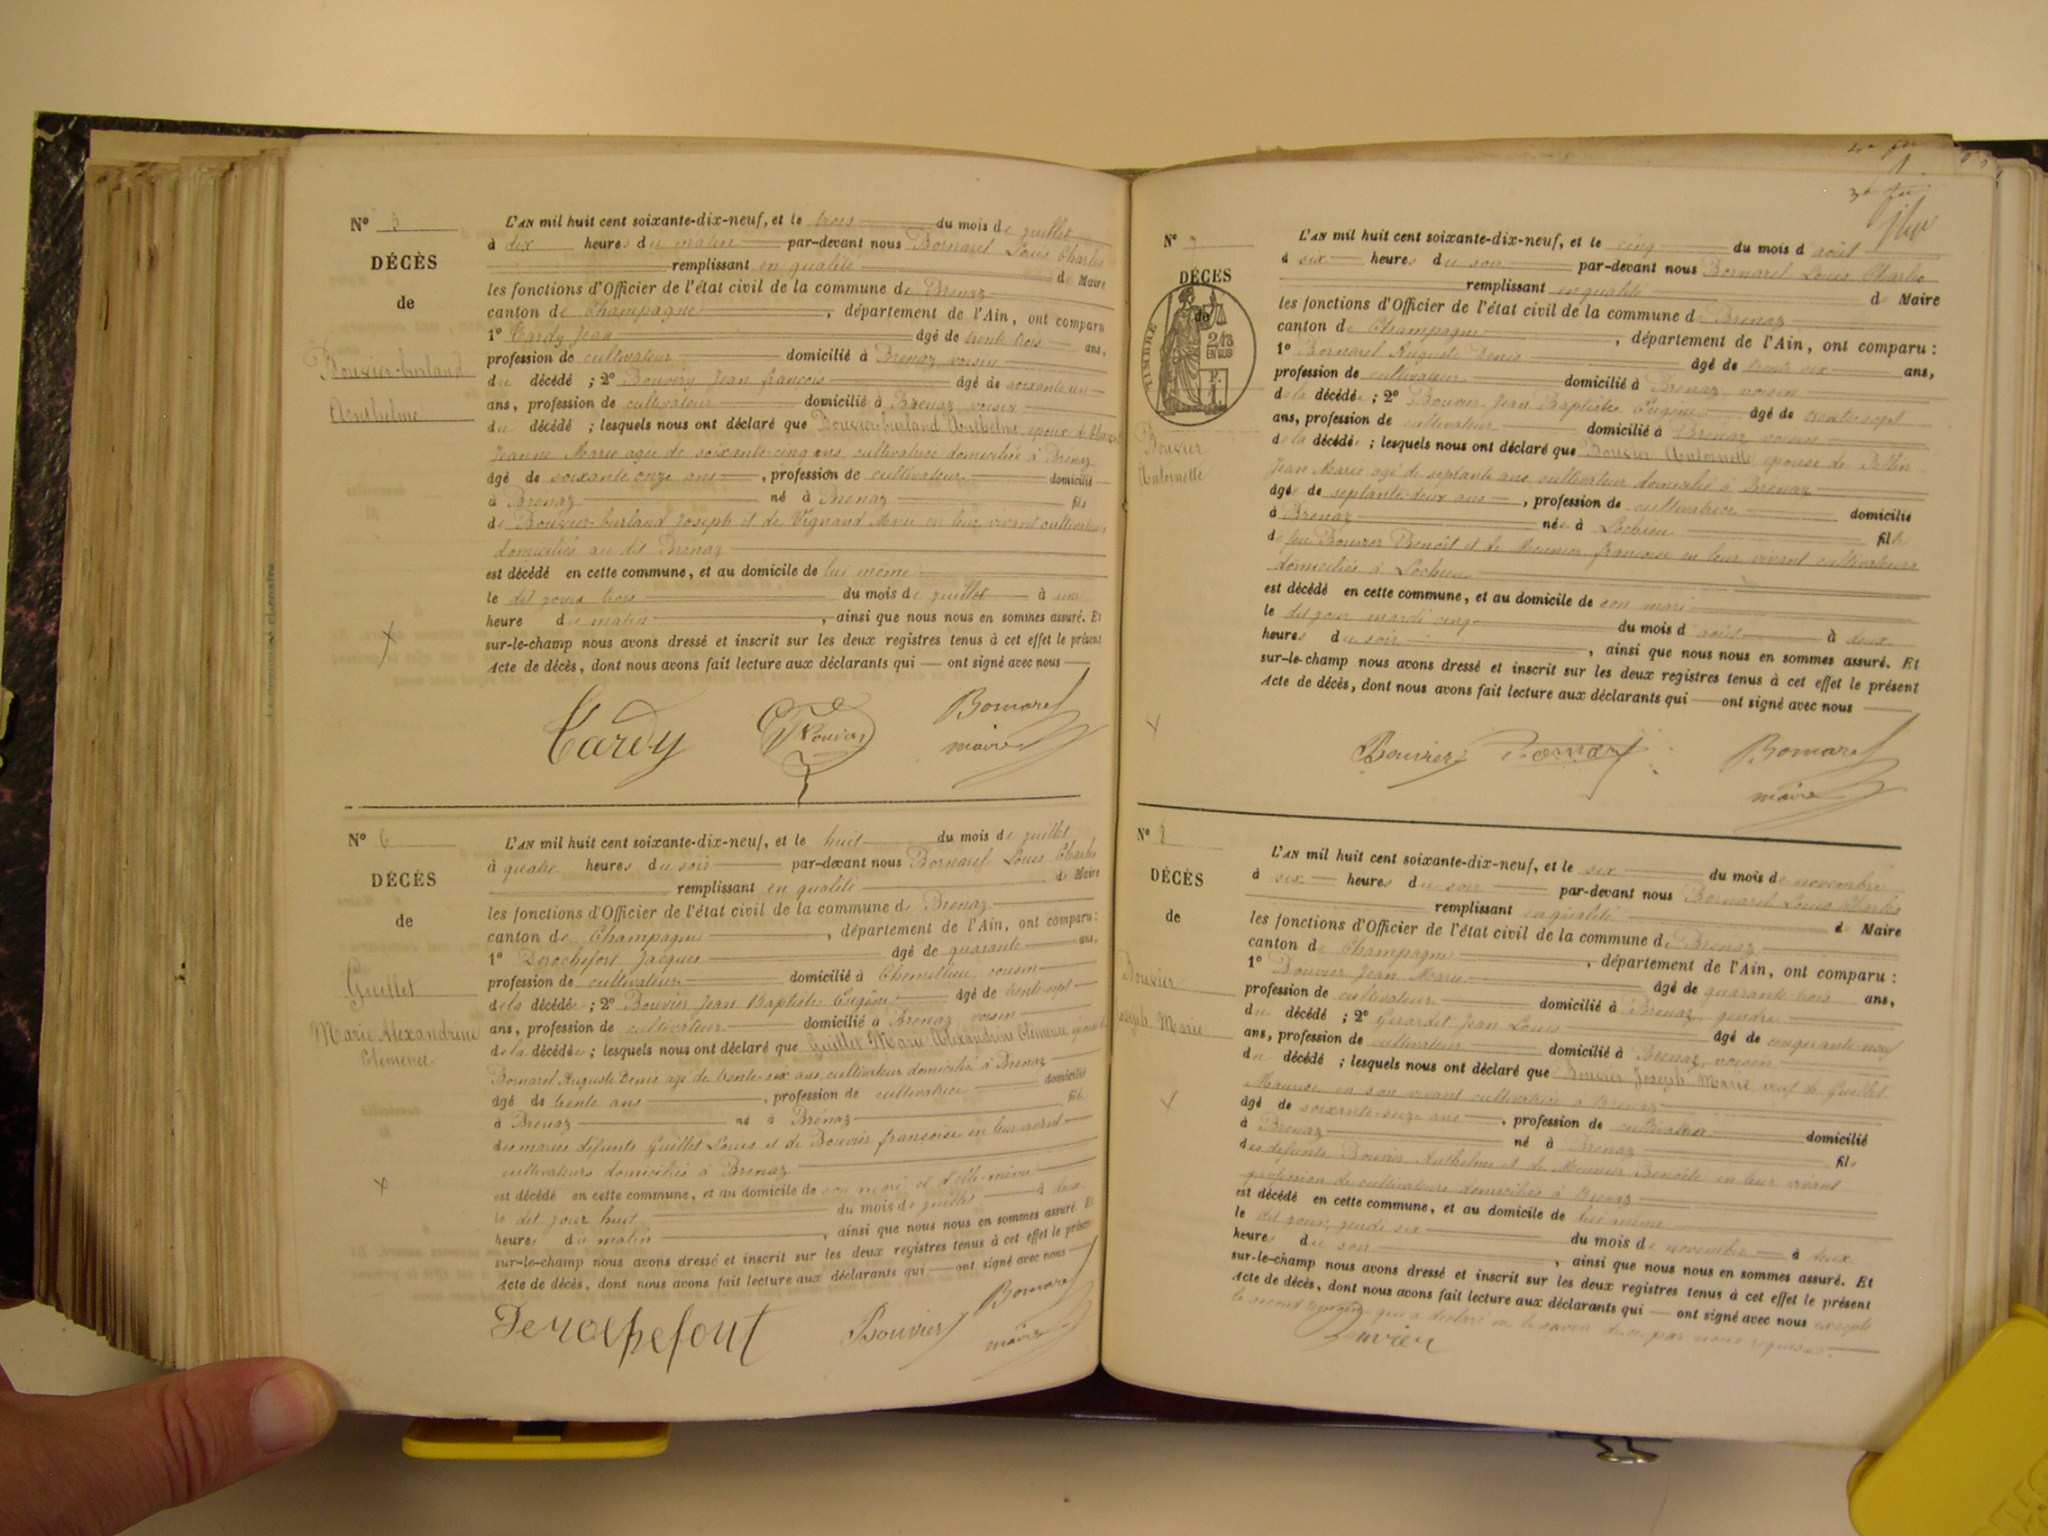 N° 5
DÉCÈS
de
Bouvier-burland
Anthelme
L'AN mil huit cent soixante-dix-neuf, et le trois du mois de juillet
à dix heures du matin par-devant nous Bornarel Louis Charles
remplissant en qualité de Maire
les fonctions d'Officier de l'état civil de la commune de Brenaz
canton de Champagne, département de l'Ain, ont comparu
1° Tardy Jean âgé de trente trois ans,
profession de cultivateur domicilié à Brenaz voisin
du décédé ; 2° Bouvier Jean françois âgé de soixante un
ans, profession de cultivateur domicilié à Brenaz voisin
du décédé ; lesquels nous ont déclaré que Bouvier-burland Anthelme époux de
Jeanne Marie agée de soixante cinq ans cultivatrice domiciliée à Brénaz
âgé de soixante onze ans, profession de cultivateur domicilié
à Brenaz né à Brenaz fils
de Bouvier-burland Joseph et de Vignand Marie en leur vivant cultivateurs
domiciliés au dit Brénaz
est décédé en cette commune, et au domicile de lui même
le dit jour trois du mois de juillet à une
heure du matin, ainsi que nous nous en sommes assuré. Et
sur-le-champ nous avons dressé et inscrit sur les deux registres tenus à cet effet le présent
Acte de décès, dont nous avons fait lecture aux déclarants qui ont signé avec nous
Tardy Bornarel
maire
N° 6
DÉCÈS
de
Guillet
Marie Alexandrine
Clémence
L'AN mil huit cent soixante-dix-neuf, et le huit du mois de juillet
à quatre heures du soir par-devant nous Bornarel Louis Charles
remplissant en qualité de Maire
les fonctions d'Officier de l'état civil de la commune de Brenaz
canton de Champagne, département de l'Ain, ont comparu :
1° Derochefort Jacques âgé de quarante ans,
profession de cultivateur domicilié à Chemillieu cousin
de la décédée ; 2° Bouvier Jean Baptiste Eugène âgé de trente sept
ans, profession de cultivateur domicilié à Brenaz voisin
de la décédée ; lesquels nous ont déclaré que Guillet Marie Alexandrine Clémence épouse de
Bornarel Auguste Denis agé de trente six ans cultivateur domicilié à Brenaz
âgé de trente ans, profession de cultivatrice domicilié
à Brenaz né à Brénaz fille
des mariés défunts Guillet Louis et de Bouvier françoise en leur vivant
cultivateurs domiciliés à Brenaz
est décédé en cette commune, et au domicile de son mari et d'elle-même
le dit jour huit du mois de juillet à deux
heures du matin, ainsi que nous nous en sommes assuré. Et
sur-le-champ nous avons dressé et inscrit sur les deux registres tenus à cet effet le présent
Acte de décès, dont nous avons fait lecture aux déclarants qui ont signé avec nous
Derochefort Bouvier Bornarel
maire
N° 7
DÉCÈS
de
TIMBRE
2/10
EN SUS
Bouvier
Antoinette
L'AN mil huit cent soixante-dix-neuf, et le cinq du mois d août
à six heures du soir par-devant nous Bornarel Louis Charles
remplissant en qualité de Maire
les fonctions d'Officier de l'état civil de la commune de Brenaz
canton de Champagne, département de l'Ain, ont comparu :
1° Bornarel Auguste Denis âgé de trente six ans,
profession de cultivateur domicilié à Brenaz voisin
de la décédée ; 2° Bouvier Jean Baptiste Eugène âgé de trente sept
ans, profession de cultivateur domicilié à Brénaz voisin
de la décédée ; lesquels nous ont déclaré que Bouvier Antoinette épouse de
Jean Marie agé de septante ans cultivateur domicilié à Brenaz
âgée de septante-deux ans, profession de cultivatrice domicilié
à Brenaz née à Lochieu fille
de feu Bouvier Benoît et de Meunier françoise en leur vivant cultivateurs
domiciliés à Lochieu
est décédé en cette commune, et au domicile de son mari
le dit jour mardi cinq du mois d août à deux
heures du soir, ainsi que nous nous en sommes assuré. Et
sur-le-champ nous avons dressé et inscrit sur les deux registres tenus à cet effet le présent
Acte de décès, dont nous avons fait lecture aux déclarants qui ont signé avec nous
Bouvier Bornarel Bornarel
maire
N° 8
DÉCÈS
de
Bouvier
Joseph Marie
L'AN mil huit cent soixante-dix-neuf, et le six du mois de novembre
à six heures du soir par-devant nous Bornarel Louis Charles
remplissant en qualité de Maire
les fonctions d'Officier de l'état civil de la commune de Brénaz
canton de Champagne, département de l'Ain, ont comparu :
1° Bouvier Jean Marie âgé de quarante trois ans,
profession de cultivateur domicilié à Brenaz gendre
du décédé ; 2° Girardet Jean Louis âgé de cinquante neuf
ans, profession de cultivateur domicilié à Brenaz voisin
du décédé ; lesquels nous ont déclaré que Bouvier Joseph Marie veuf de Guillet
en son vivant cultivatrice à Brenaz
âgé de soixante-seize ans, profession de cultivateur domicilié
à Brenaz né à Brenaz fils
des défunts Bouvier Anthelme et de Meunier Benoîte en leur vivant
profession de cultivateurs domiciliés à Brenaz
est décédé en cette commune, et au domicile de lui même
le dit jour jeudi six du mois de novembre à deux
heures du soir, ainsi que nous nous en sommes assuré. Et
sur-le-champ nous avons dressé et inscrit sur les deux registres tenus à cet effet le présent
Acte de décès, dont nous avons fait lecture aux déclarants qui ont signé avec nous excepté
le second témoin qui a déclaré ne le savoir de ce par nous requis
Bouvier